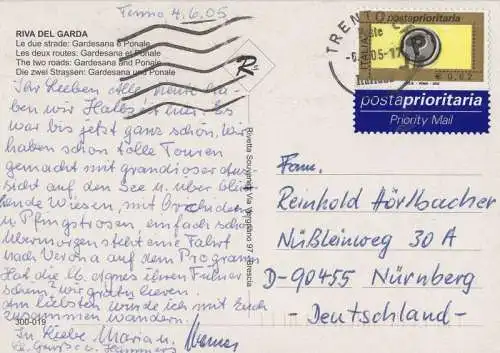 Tenno 4.6.05
RIVA DEL GARDA
Le due strade: Gardesana e Ponale
Les deux routes: Gardesana et Ponale
The two roads: Gardesana and Ponale
Die zwei Strassen: Gardesana und Ponale
Ihr Lieben Alle,
ben wir Halbzeit hier. Es
war bis jetzt ganz schön, wir
haben schon tolle Touren
gemacht mit grandioser Aus-
sicht auf den See u. über blüh
ende Wiesen, mit Orchideen
u. Pfingstrosen, einfach schön
Übermorgen steht eine Fahrt
nach Verona auf dem Programm
Hat die Agnes ihren Führer
schein? wir gratulieren.
Am liebsten würde ich mit Euch
zusammen wandern.
In Liebe Maria u. Werner
300-019
Rivetta Souvenirs Via Vergnano 97 - Brescia
TRENTO
05-17
postaprioritaria
€ 0,62
postaprioritaria
Priority Mail
Fam.
Reinhold Hörlbacher
Nüßleinweg 30 A
D-90455 Nürnberg
-Deutschland-